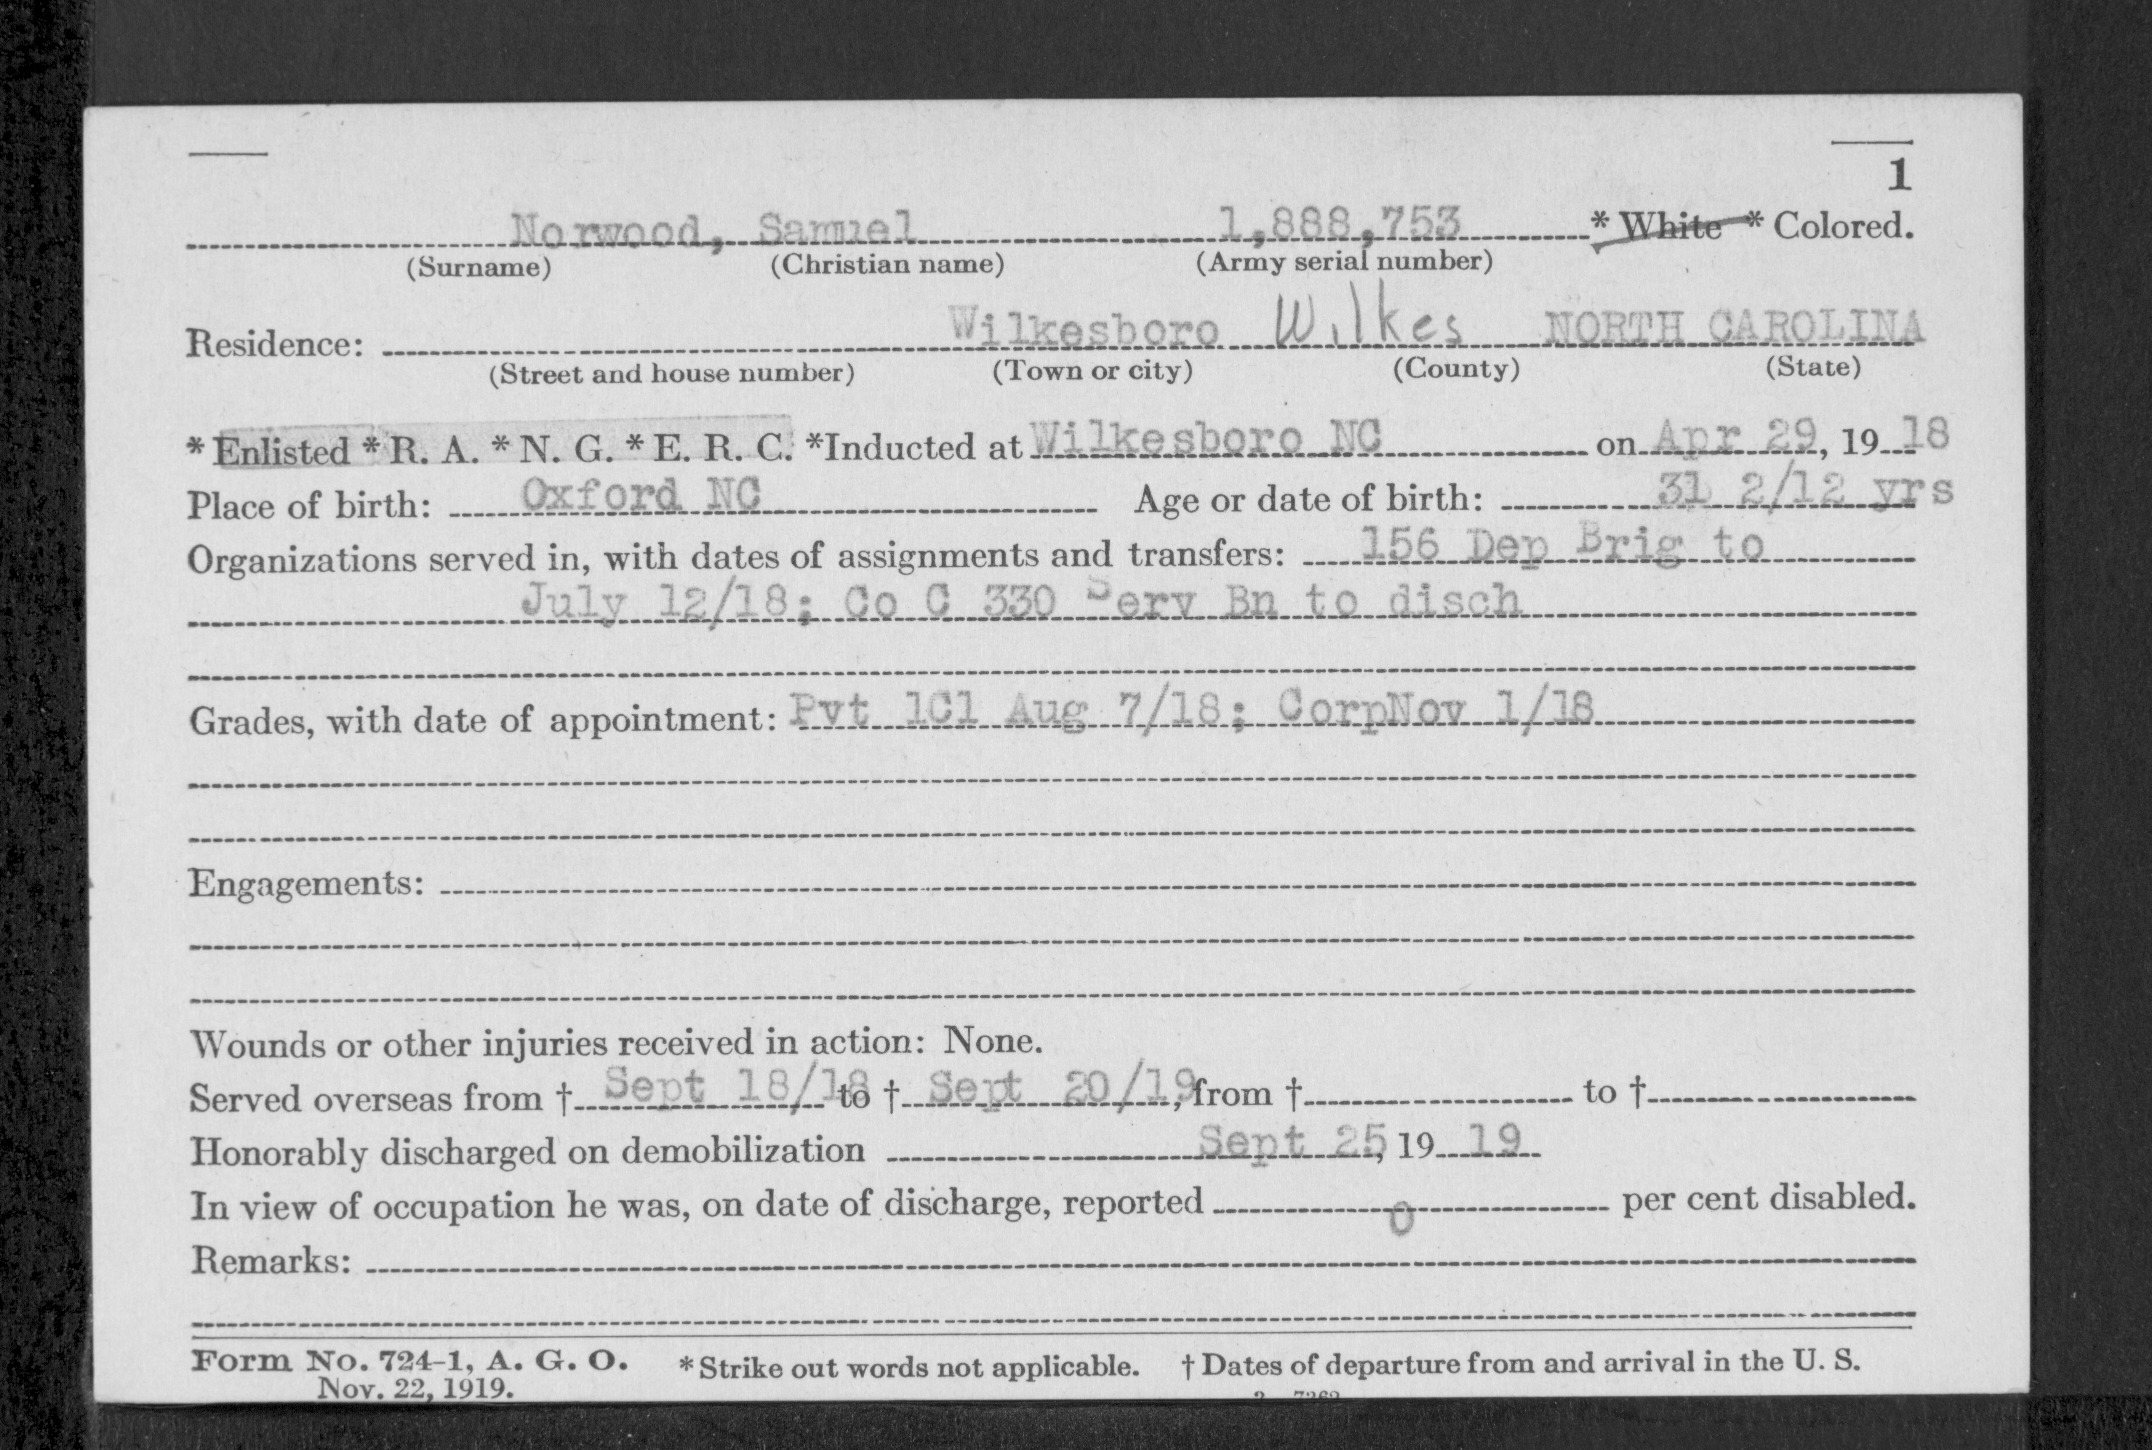 1
Norwood, Samuel 1,888,753 * White * Colored.
(Surname) (Christian name) (Army serial number)
Residence: Wilkesboro Wilkes NORTH CAROLINA
(Street and house number) (Town or city) (County) (State)
* Enlisted * R. A. * N. G. * E. R. C. *Inducted at Wilkesboro NC on Apr 29, 19 18
Place of birth: Oxford NC Age or date of birth: 31 2/12 yrs
Organizations served in, with dates of assignments and transfers: 156 Dep Brig to
July 12/18; Co C 330 Serv Bn to disch
Grades, with date of appointment: Pvt 1Cl Aug 7/18; CorpNov 1/18
Engagements:
Wounds or other injuries received in action: None.
Served overseas from † Sept 18/18 to † Sept 20/19, from † to †
Honorably discharged on demobilization Sept 25, 19 19
In view of occupation he was, on date of discharge, reported 0 per cent disabled.
Remarks:
Form No. 724-1, A. G. O. * Strike out words not applicable. † Dates of departure from and arrival in the U. S.
Nov. 22, 1919.